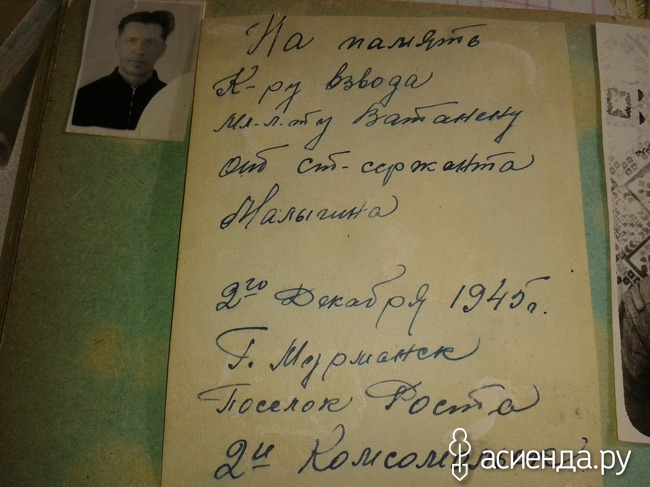 На память
К-ру взвода
мл-л-ту Ватанену
от ст-сержанта
Малыгина
2го Декабря 1945г.
Г. Мурманск
Поселок Роста
2й
асиенда.ру